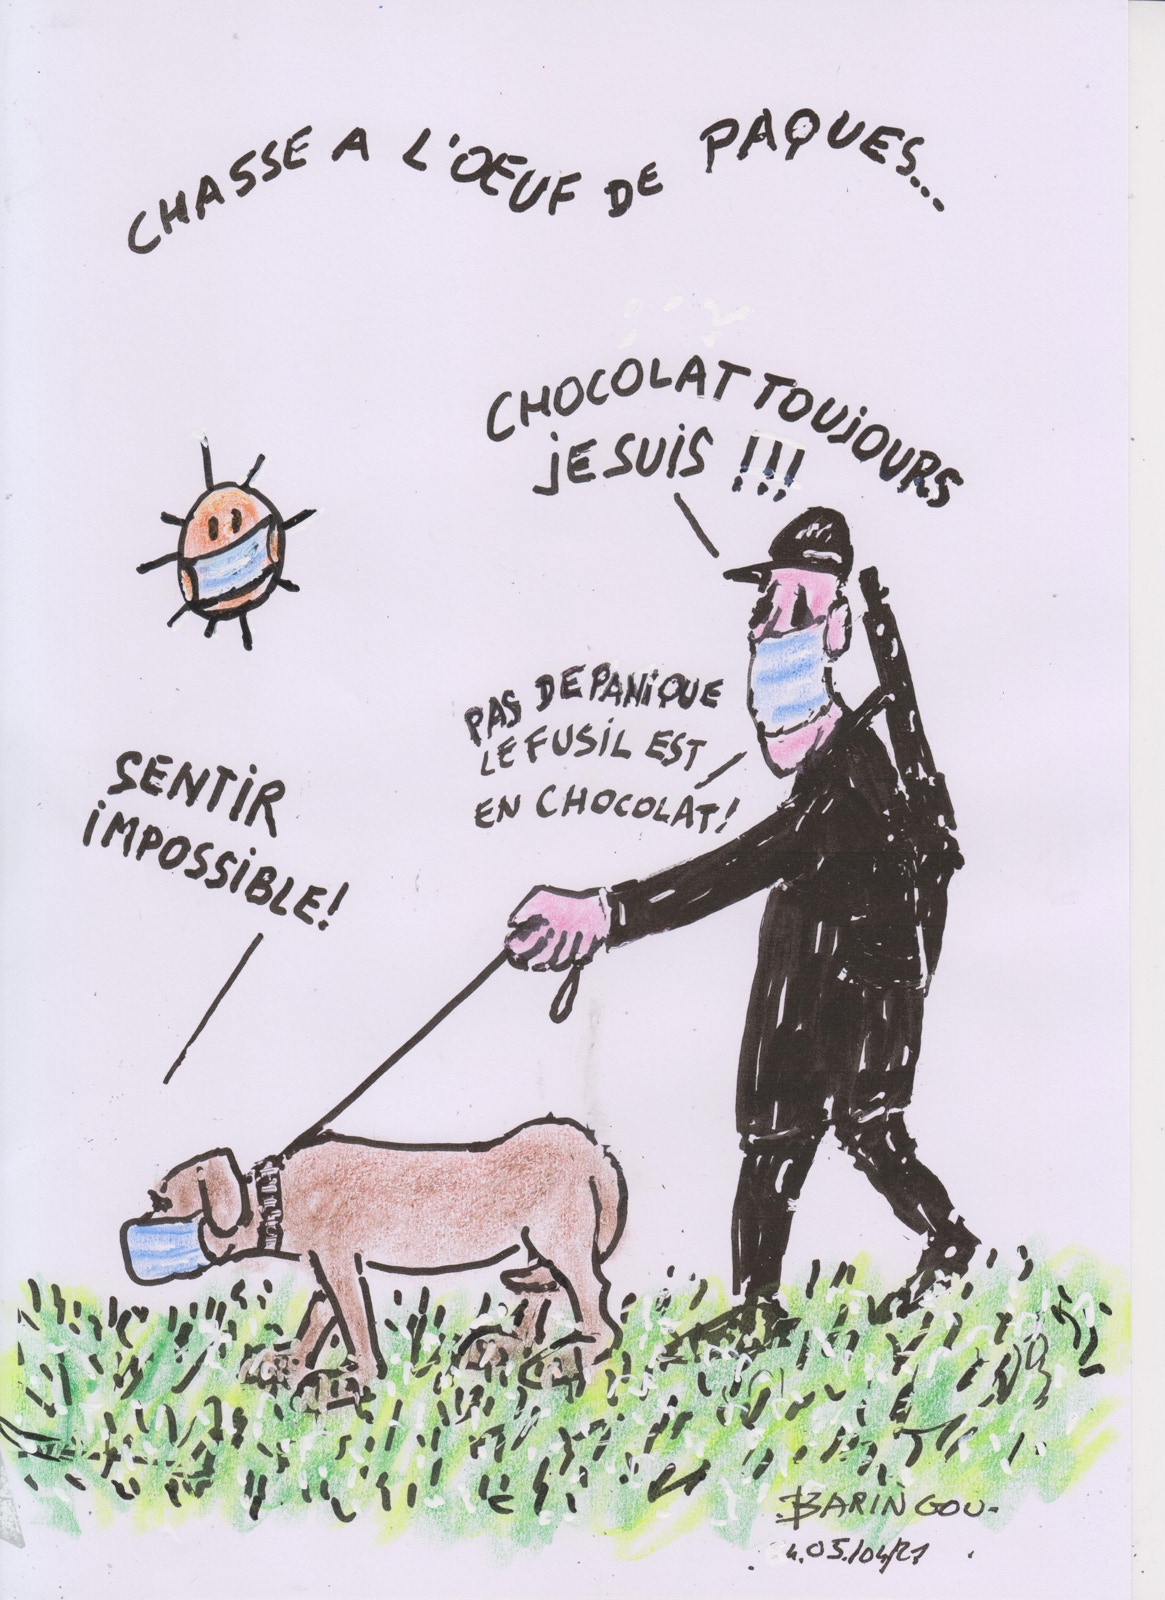 CHASSE A L'OEUF DE PAQUES...
CHOCOLAT TOUJOURS
JE SUIS !!!
PAS DE PANIQUE
LE FUSIL EST
EN CHOCOLAT!
SENTIR
IMPOSSIBLE!
BARINGOU-
05/04/21